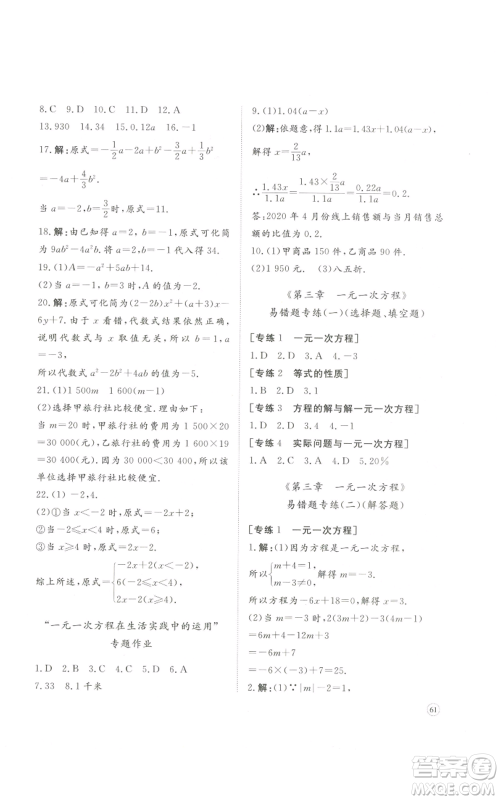 8. C　9. D　10. C　11. D　12. A
13. 930　14. 34　15. 0.12a　16. －1
17. 解：原式＝－1/2 a－2a＋2/3 b²－3/2 a＋1/3 b²
＝－4a＋4/3 b².
当 a＝1/2，b＝3/2 时，原式＝1.
18. 解：由已知得 a＝4，b＝1，原式可化简为 9ab²－4a²b＋4，将 a，b 的值代入得 34.
19. (1)4a²＋5ab－6　(2)－12
20. 解：原式可化简为(2－2b)x²＋(a＋3)x－6y＋7，因为代数式的值与字母 x 的取值无关，所以代数式可化简为－6y＋7，得 a＝－3，b＝1，
所以代数式 a²－2b²＋4b³＝9－2＋4＝11.
21. (1)1 500m　1 600m－1 600
(2)选择甲旅行社比较便宜，
当 m＝20 时，甲旅行社费用为 1 500×20＝30 000(元)，乙旅行社费用为 1 600×19＝30 400(元)，因为 30 400＞30 000，所以选择甲旅行社比较便宜.
22. (1)－2，4.
(2)①当 x＜－2 时，原式＝－2x＋2；
②当－2≤x＜4 时，原式＝6；
③当 x≥4 时，原式＝2x－2.
综上所述，原式＝{－2x＋2(x＜－2)，6(－2≤x＜4)，2x－2(x≥4).
“一元一次方程在生活实践中的运用”
专题作业
1. C　2. D　3. D　4. A　5. C　6. A
7. 33　8. 1 千米
9. (1)1.04(a－x)
(2)解：依题意，得 1.1a＝1.43x＋1.04(a－x)，
解得 x＝2/13 a，
∴1.43x/1.1a＝(1.43×2/13 a)/1.1a＝0.22a/1.1a＝0.2.
答：2020 年 4 月份线上销售额与当月销售总额的比值为 0.2.
10. (1)甲商品 150 件，乙商品 90 件.
(2)1 950 元.　(3)八五折.
《第三章　一元一次方程》
易错题专练(一)(选择题、填空题)
[专练 1　一元一次方程]
1. D　2. D　3. A　4. －3
[专练 2　等式的性质]
1. B　2. D　3. 1
[专练 3　方程的解与解一元一次方程]
[专练 4　实际问题与一元一次方程]
1. C　2. A　3. A　4. D　5. 20%
《第三章　一元一次方程》
易错题专练(二)(解答题)
[专练 1　一元一次方程]
1. 解：(1)因为方程是一元一次方程，
所以{m＋4＝1，m＋3≠0.　所以 m＝－3.
所以原方程为－6x＋18＝0，解得 x＝3.
(2)当 m＝－3 时，2(3m＋2)－3(4m－1)
＝6m＋4－12m＋3
＝－6m＋7
＝－6×(－3)＋7
＝25.
61